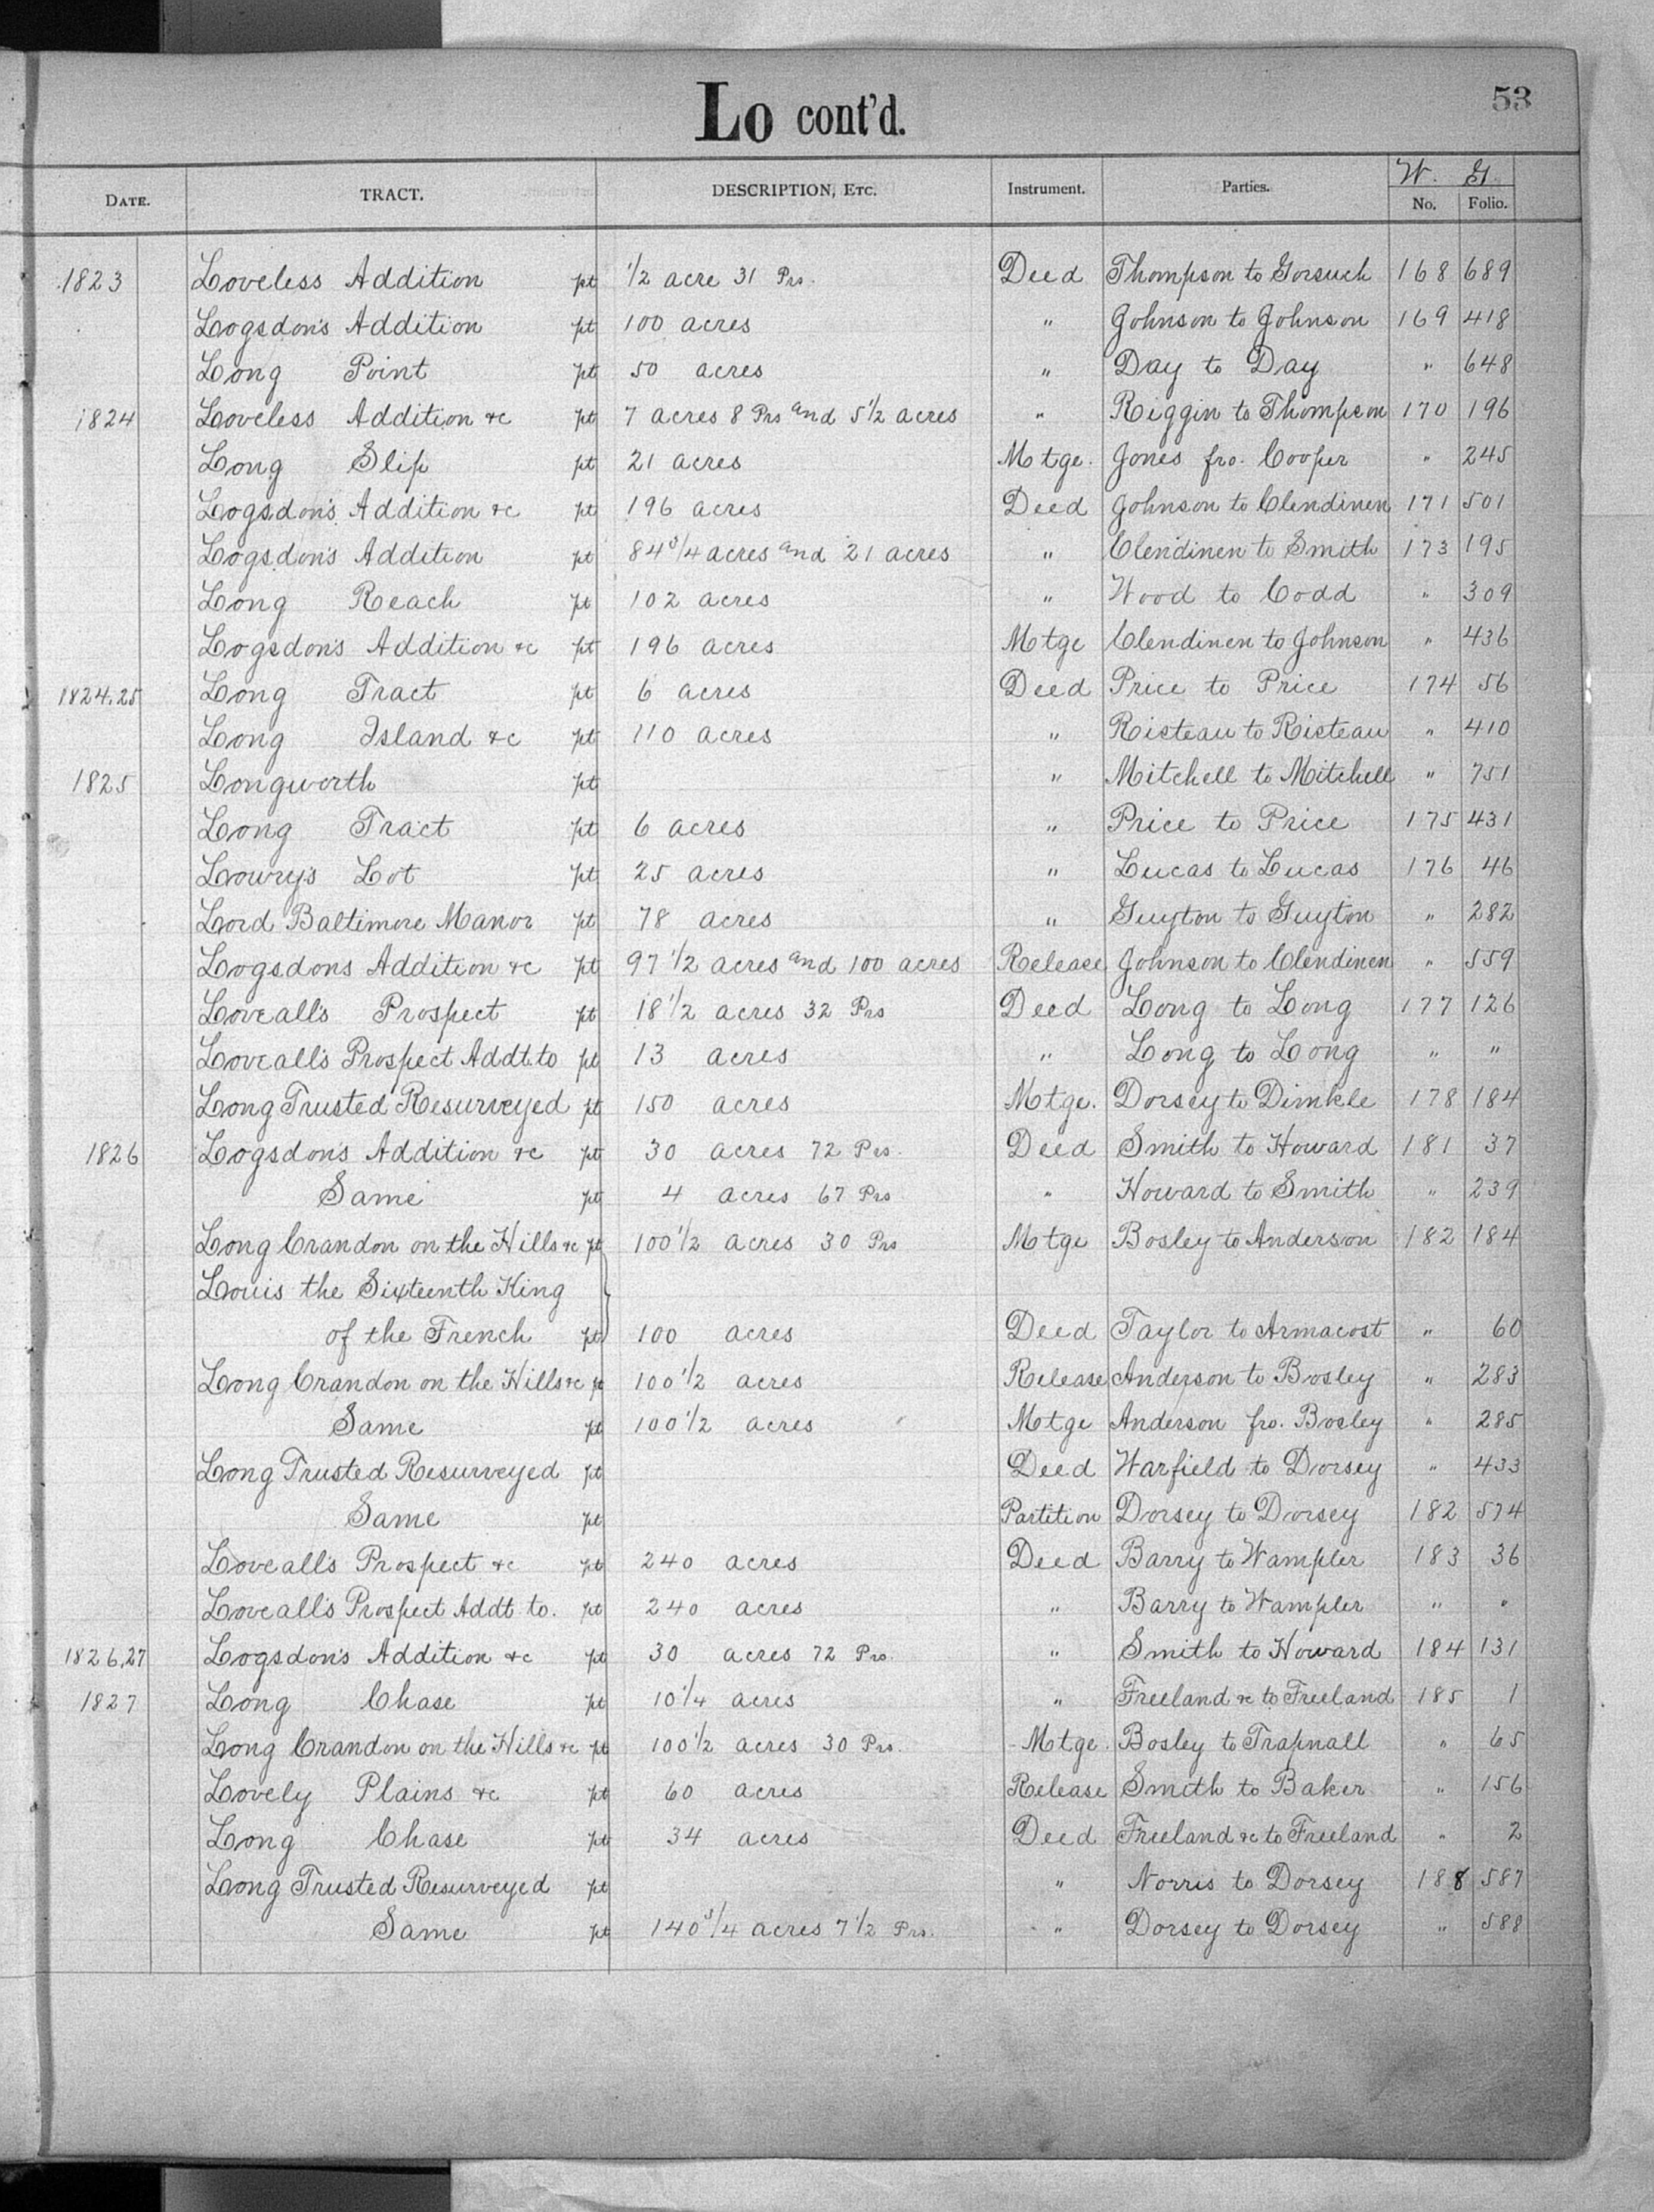 Lo cont'd.
53
DATE. TRACT. DESCRIPTION, ETC. Instrument. Parties. W. G. No. Folio.
1823 Loveless Addition pt 1/2 acre 31 Prs. Deed Thompson to Gorsuch 168 689
Logsdon's Addition pt 100 acres " Johnson to Johnson 169 418
Long Point pt 50 acres " Day to Day " 648
1824 Loveless Addition &c pt 7 acres 8 Prs and 5 1/2 acres " Riggin to Thompson 170 196
Long Slip pt 21 acres Mtge. Jones fro. Cooper " 245
Logsdon's Addition &c pt 196 acres Deed Johnson to Clendinen 171 501
Logsdon's Addition pt 84 3/4 acres and 21 acres " Clendinen to Smith 173 195
Long Reach pt 102 acres " Wood to Codd " 309
Logsdon's Addition &c pt 196 acres Mtge Clendinen to Johnson " 436
1824.25 Long Tract pt 6 acres Deed Price to Price 174 56
Long Island &c pt 110 acres " Risteau to Risteau " 410
1825 Longworth pt " Mitchell to Mitchell " 751
Long Tract pt 6 acres " Price to Price 175 431
Lowry's Lot pt 25 acres " Lucas to Lucas 176 46
Lord Baltimore Manor pt 78 acres " Guyton to Guyton " 282
Logsdons Addition &c pt 97 1/2 acres and 100 acres Release Johnson to Clendinen " 559
Loveall's Prospect pt 18 1/2 acres 32 Prs Deed Long to Long 177 126
Loveall's Prospect Addt. to pt 13 acres " Long to Long " "
Long Trusted Resurveyed pt 150 acres Mtge. Dorsey to Dinkle 178 184
1826 Logsdon's Addition &c pt 30 acres 72 Prs. Deed Smith to Howard 181 37
Same pt 4 acres 67 Prs " Howard to Smith " 239
Long Crandon on the Hills &c pt 100 1/2 acres 30 Prs Mtge Bosley to Anderson 182 184
Louis the Sixteenth King
of the French pt 100 acres Deed Taylor to Armacost " 60
Long Crandon on the Hills &c pt 100 1/2 acres Release Anderson to Bosley " 283
Same pt 100 1/2 acres Mtge Anderson fro. Bosley " 285
Long Trusted Resurveyed pt Deed Warfield to Dorsey " 433
Same pt Partition Dorsey to Dorsey 182 574
Loveall's Prospect &c pt 240 acres Deed Barry to Wampler 183 36
Loveall's Prospect Addt to. pt 240 acres " Barry to Wampler " "
1826,27 Logsdon's Addition &c pt 30 acres 72 Prs. " Smith to Howard 184 131
1827 Long Chase pt 10 1/4 acres " Freeland &c to Freeland 185 1
Long Crandon on the Hills &c pt 100 1/2 acres 30 Prs. Mtge. Bosley to Trapnall " 65
Lovely Plains &c pt 60 acres Release Smith to Baker " 156
Long Chase pt 34 acres Deed Freeland &c to Freeland " 2
Long Trusted Resurveyed pt " Norris to Dorsey 188 587
Same pt 140 3/4 acres 7 1/2 Prs. " Dorsey to Dorsey " 588